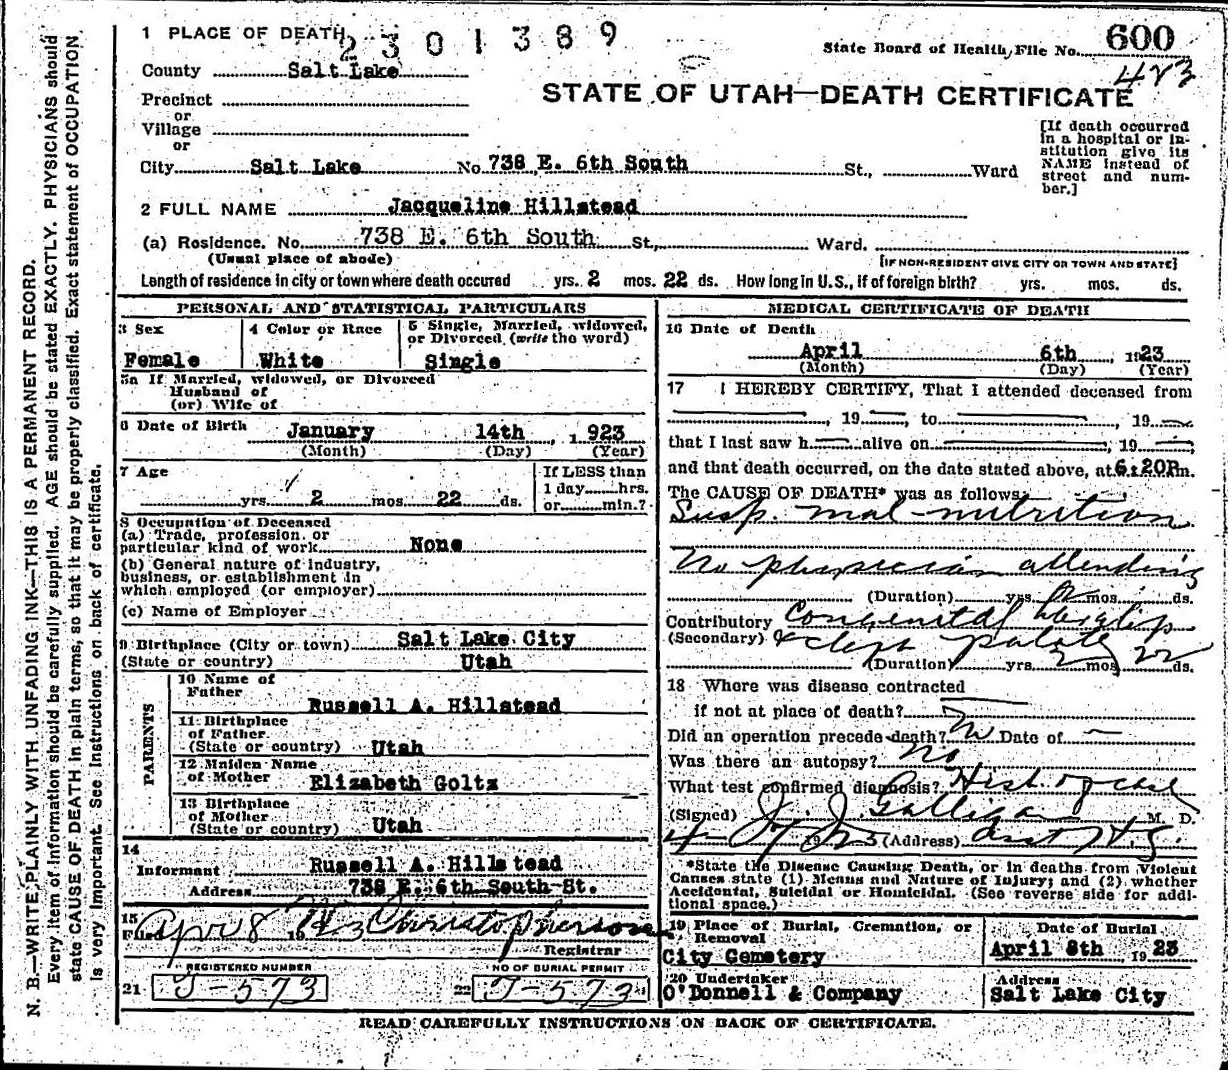 1 PLACE OF DEARTH
2301389
State Board of Health, File No. 600
County Salt Lake
423
STATE OF UTAH—DEATH CERTIFICATE
Precinct
or
Village
or
City Salt Lake No 738 E. 6th South St., Ward
[If death occurred
in a hospital or in-
stitution give its
NAME instead of
street and num-
ber.]
2 FULL NAME Jacqueline Hillstead
(a) Residence. No. 738 E. 6th South St., Ward.
(Usual place of abode) [IF NON-RESIDENT GIVE CITY OR TOWN AND STATE]
Length of residence in city or town where death occured yrs. 2 mos. 22 ds. How long in U.S., if of foreign birth? yrs. mos. ds.
PERSONAL AND STATISTICAL PARTICULARS
3 Sex
Female
4 Color or Race
White
5 Single, Married, widowed,
or Divorced (write the word)
Single
5a If Married, widowed, or Divorced
Husband of
(or) Wife of
6 Date of Birth January 14th, 1923
(Month) (Day) (Year)
7 Age
yrs. 2 mos. 22 ds.
If LESS than
1 day hrs.
or min.?
8 Occupation of Deceased
(a) Trade, profession or
particular kind of work None
(b) General nature of industry,
business, or establishment in
which employed (or employer)
(c) Name of Employer
9 Birthplace (City or town) Salt Lake City
(State or country) Utah
PARENTS
10 Name of
Father
Russell A. Hillstead
11 Birthplace
of Father
(State or country) Utah
12 Maiden Name
of Mother Elizabeth Goltz
13 Birthplace
of Mother
(State or country) Utah
14
Informant Russell A. Hillstead
Address 738 E. 6th South St.
15
Filed Apr 8 1923 Christopherson
Registrar
REGISTERED NUMBER NO OF BURIAL PERMIT
21 J-573 22 J-573
MEDICAL CERTIFICATE OF DEATH
16 Date of Death
April 6th, 1923
(Month) (Day) (Year)
17 I HEREBY CERTIFY, That I attended deceased from
, 19 , to , 19
that I last saw h alive on , 19
and that death occurred, on the date stated above, at 6:20P m.
The CAUSE OF DEATH* was as follows:
Susp. mal-nutrition
No physician attending
(Duration) yrs. mos. ds.
Contributory Congenital harelip
(Secondary) & cleft palate
(Duration) yrs. 2 mos. 22 ds.
18 Where was disease contracted
if not at place of death?
Did an operation precede death? No Date of
Was there an autopsy? No
What test confirmed diagnosis? Hist of case
(Signed) J. J. Galligan M. D.
(Address) Asst H.S.
*State the Disease Causing Death, or in deaths from Violent
Causes state (1) Means and Nature of Injury; and (2) whether
Accidental, Suicidal or Homicidal. (See reverse side for addi-
tional space.)
19 Place of Burial, Cremation, or
Removal
City Cemetery
Date of Burial
April 8th 1923
20 Undertaker
O'Donnell & Company
Address
Salt Lake City
READ CAREFULLY INSTRUCTIONS ON BACK OF CERTIFICATE.
N. B.—WRITE PLAINLY WITH UNFADING INK—THIS IS A PERMANENT RECORD.
Every item of information should be carefully supplied. AGE should be stated EXACTLY. PHYSICIANS should
state CAUSE OF DEATH in plain terms, so that it may be properly classified. Exact statement of OCCUPATION
is very important. See instructions on back of certificate.